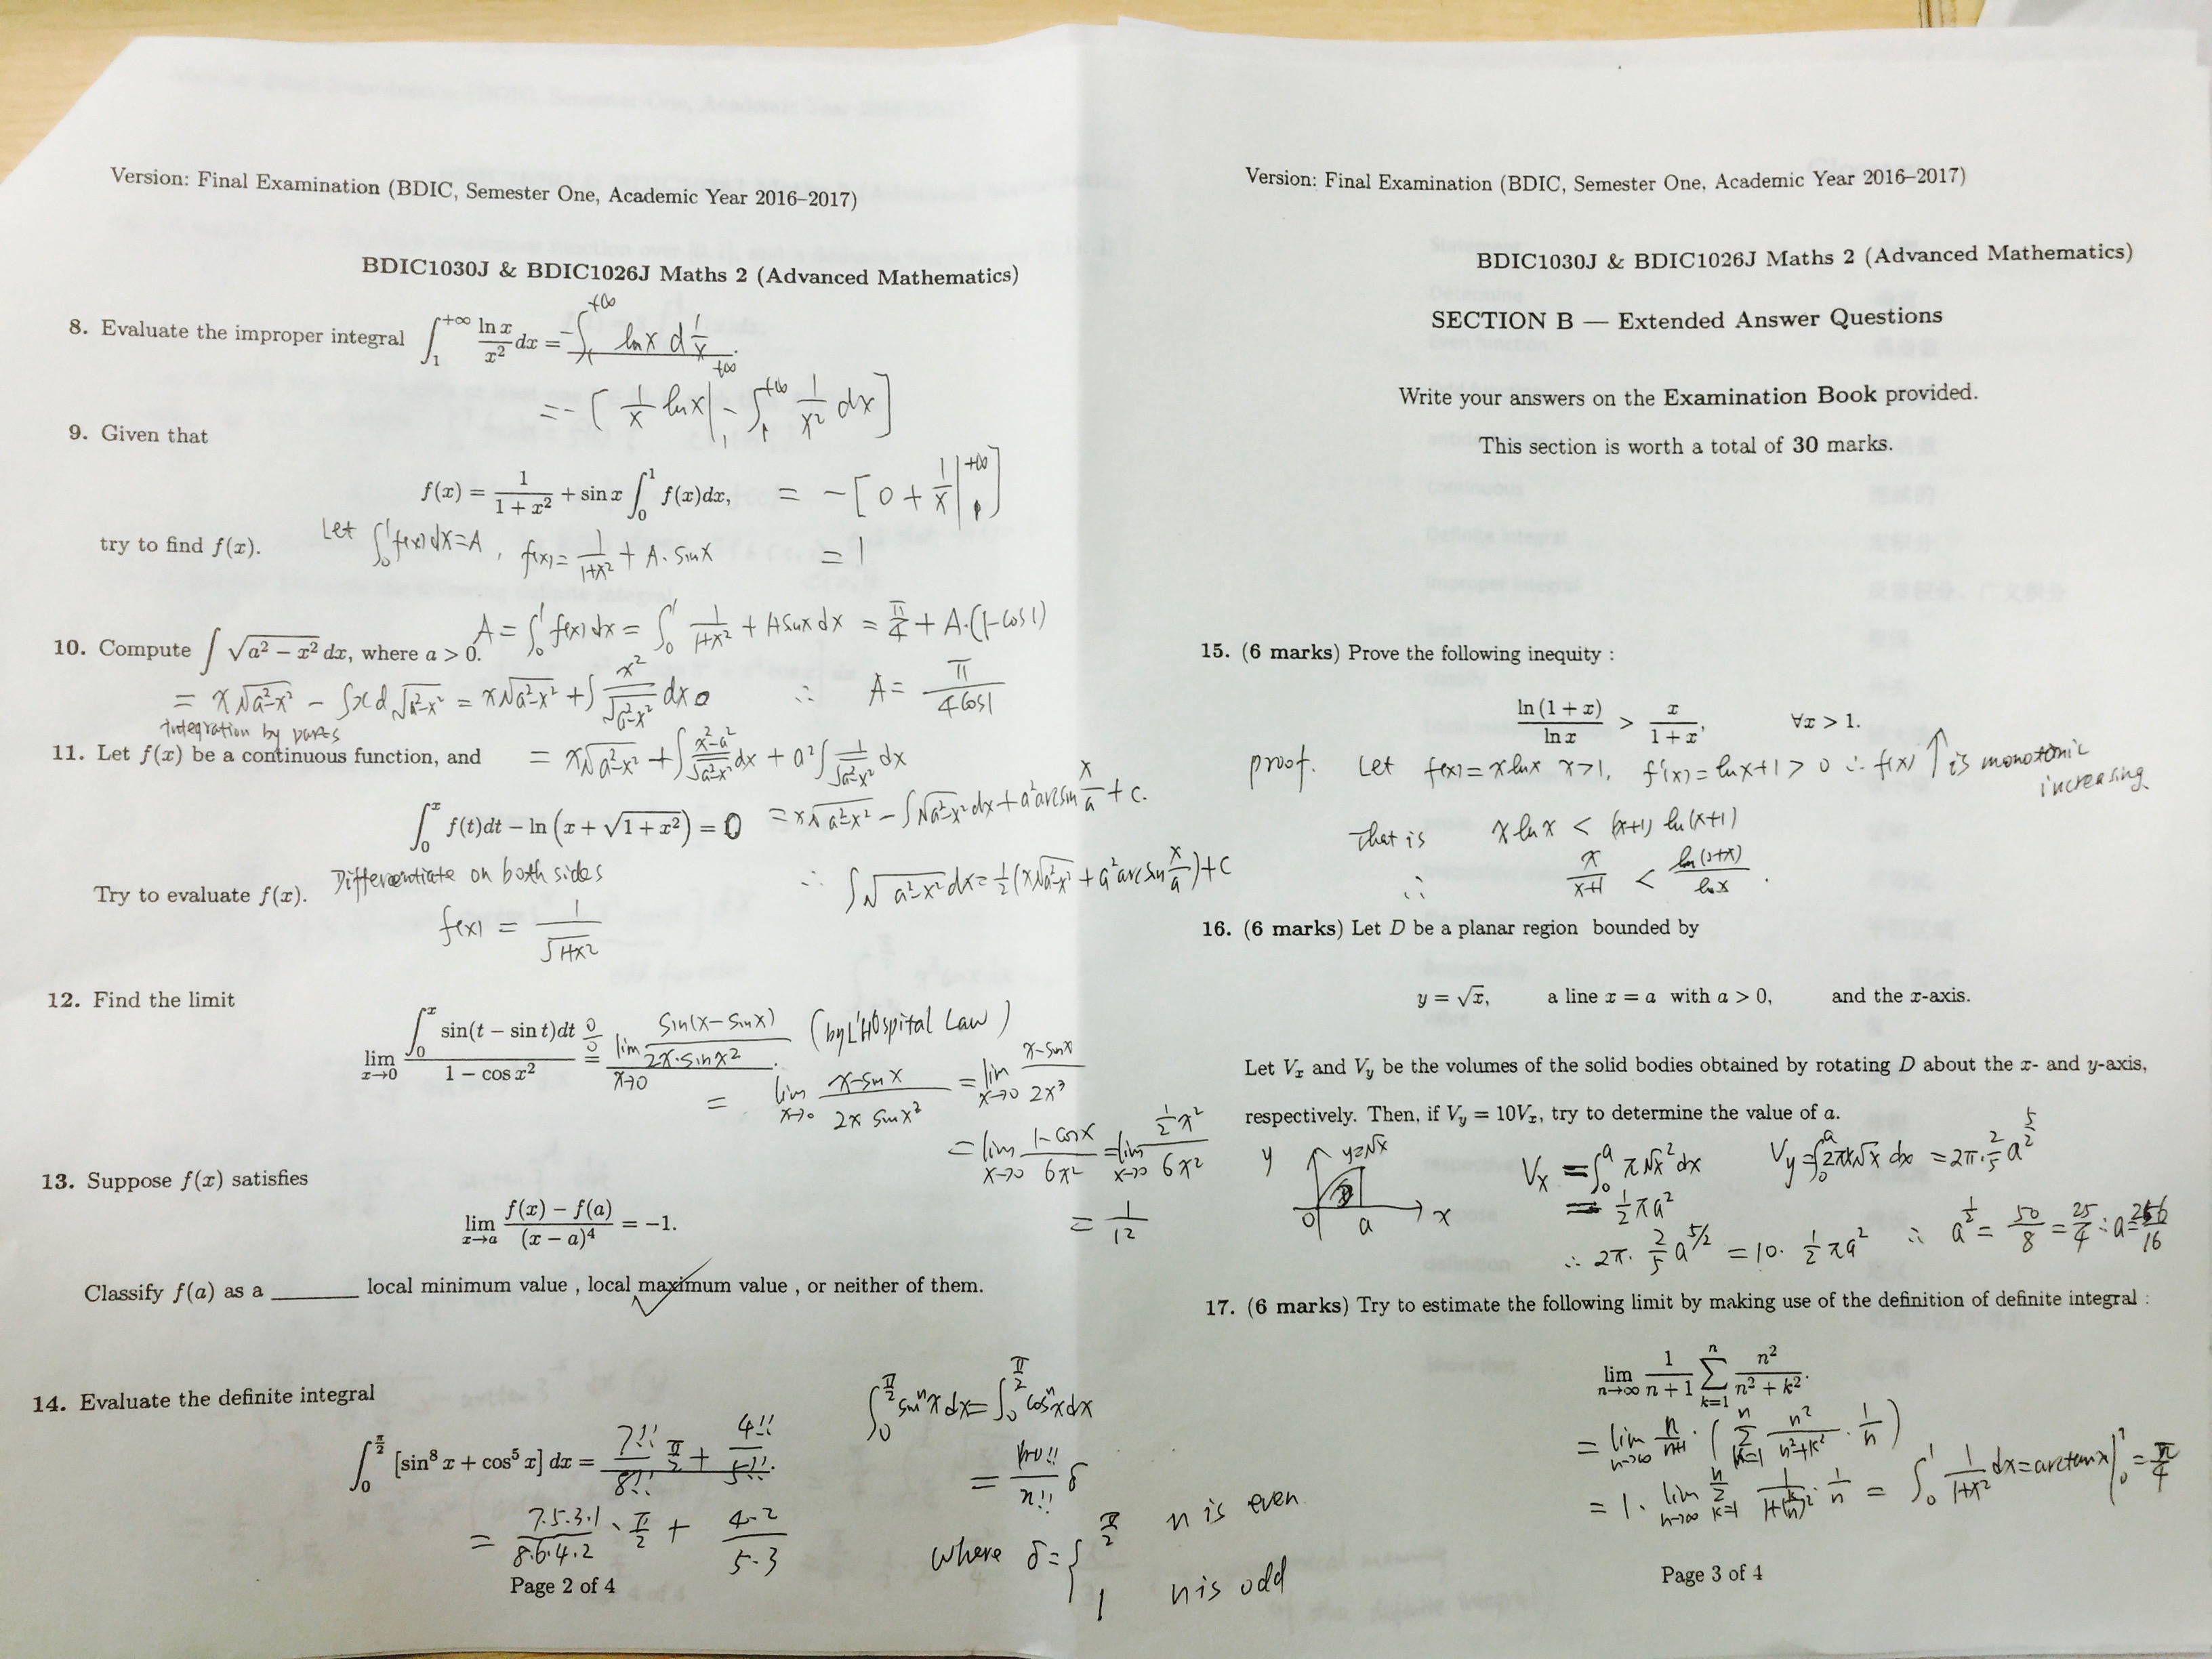 Version: Final Examination (BDIC, Semester One, Academic Year 2016–2017)
BDIC1030J & BDIC1026J Maths 2 (Advanced Mathematics)
8. Evaluate the improper integral ∫_1^{+∞} ln x / x² dx = -∫_1^{+∞} ln x d 1/x
= -[ 1/x ln x |_1^{+∞} - ∫_1^{+∞} 1/x² dx ]
9. Given that
f(x) = 1/(1 + x²) + sin x ∫_0^1 f(x)dx, = -[ 0 + 1/x |_1^{+∞} ]
try to find f(x). Let ∫_0^1 f(x)dx = A, f(x) = 1/(1+x²) + A·sin x = 1
A = ∫_0^1 f(x)dx = ∫_0^1 1/(1+x²) + A sin x dx = π/4 + A·(1-cos1)
10. Compute ∫ √(a² − x²) dx, where a > 0.
= x√(a²-x²) - ∫x d√(a²-x²) = x√(a²-x²) + ∫ x²/√(a²-x²) dx ∴ A = π/(4cos1)
Integration by parts
11. Let f(x) be a continuous function, and = x√(a²-x²) + ∫ (x²-a²)/√(a²-x²) dx + a²∫ 1/√(a²-x²) dx
∫_0^x f(t)dt − ln (x + √(1 + x²)) = 0 = x√(a²-x²) - ∫√(a²-x²) dx + a² arcsin x/a + c.
Try to evaluate f(x). Differentiate on both sides ∴ ∫√(a²-x²) dx = 1/2 (x√(a²-x²) + a² arcsin x/a) + C
f(x) = 1/√(1+x²)
12. Find the limit
lim_{x→0} ∫_0^x sin(t − sin t)dt / (1 − cos x²) =^{0/0} lim_{x→0} sin(x-sin x) / (2x·sin x²). (by L'Hospital Law)
= lim_{x→0} (x-sin x) / (2x sin x²) = lim_{x→0} (x-sin x) / (2x³)
= lim_{x→0} (1-cos x) / (6x²) = lim_{x→0} (1/2 x²) / (6x²)
= 1/12
13. Suppose f(x) satisfies
lim_{x→a} (f(x) − f(a)) / (x − a)⁴ = −1.
Classify f(a) as a ______ local minimum value , local maximum value , or neither of them.
14. Evaluate the definite integral
∫_0^{π/2} sinⁿx dx = ∫_0^{π/2} cosⁿx dx
∫_0^{π/2} [sin⁸ x + cos⁵ x] dx = 7!!/8!! π/2 + 4!!/5!!.
= (n-1)!!/n!! δ
= 7·5·3·1/8·6·4·2 · π/2 + 4·2/5·3
where δ = { π/2 n is even
1 n is odd
Page 2 of 4
Version: Final Examination (BDIC, Semester One, Academic Year 2016–2017)
BDIC1030J & BDIC1026J Maths 2 (Advanced Mathematics)
SECTION B — Extended Answer Questions
Write your answers on the Examination Book provided.
This section is worth a total of 30 marks.
15. (6 marks) Prove the following inequity :
ln (1 + x) / ln x > x / (1 + x), ∀x > 1.
proof. Let f(x) = x ln x x>1, f'(x) = ln x+1 > 0 ∴ f(x) ↑ is monotonic
increasing
That is x ln x < (x+1) ln(x+1)
∴ x/(x+1) < ln(1+x)/ln x.
16. (6 marks) Let D be a planar region bounded by
y = √x, a line x = a with a > 0, and the x-axis.
Let V_x and V_y be the volumes of the solid bodies obtained by rotating D about the x- and y-axis,
respectively. Then, if V_y = 10V_x, try to determine the value of a.
y y=√x D 0 a x
V_x = ∫_0^a π√x² dx V_y = ∫_0^a 2πx√x dx = 2π·2/5 a^{5/2}
= 1/2 πa²
∴ 2π· 2/5 a^{5/2} = 10· 1/2 πa² ∴ a^{1/2} = 50/8 = 25/4 ∴ a =
17. (6 marks) Try to estimate the following limit by making use of the definition of definite integral :
lim_{n→∞} 1/(n + 1) ∑_{k=1}^n n²/(n² + k²).
= lim_{n→∞} n/(n+1) · ( ∑_{k=1}^n n²/(n²+k²) · 1/n )
= 1 · lim_{n→∞} ∑_{k=1}^n 1/(1+(k/n)²) · 1/n = ∫_0^1 1/(1+x²) dx = arctan x |_0^1 = π/4
Page 3 of 4